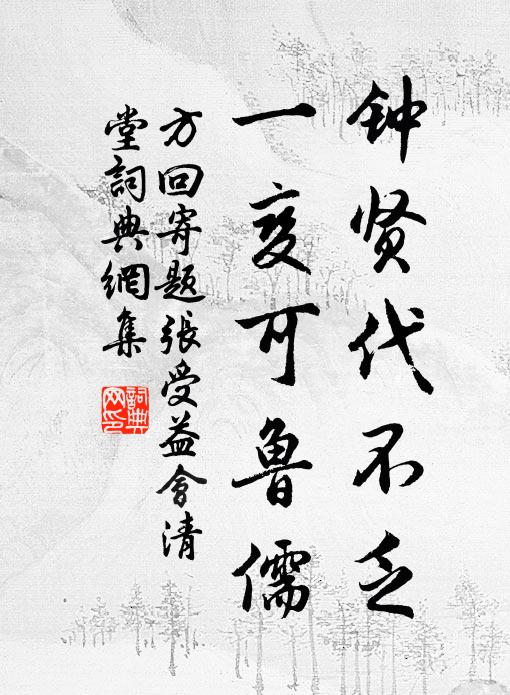 钟贤代不乏
一变可鲁儒
方回寄题张受益会清
堂詞典網集
詞典
网印